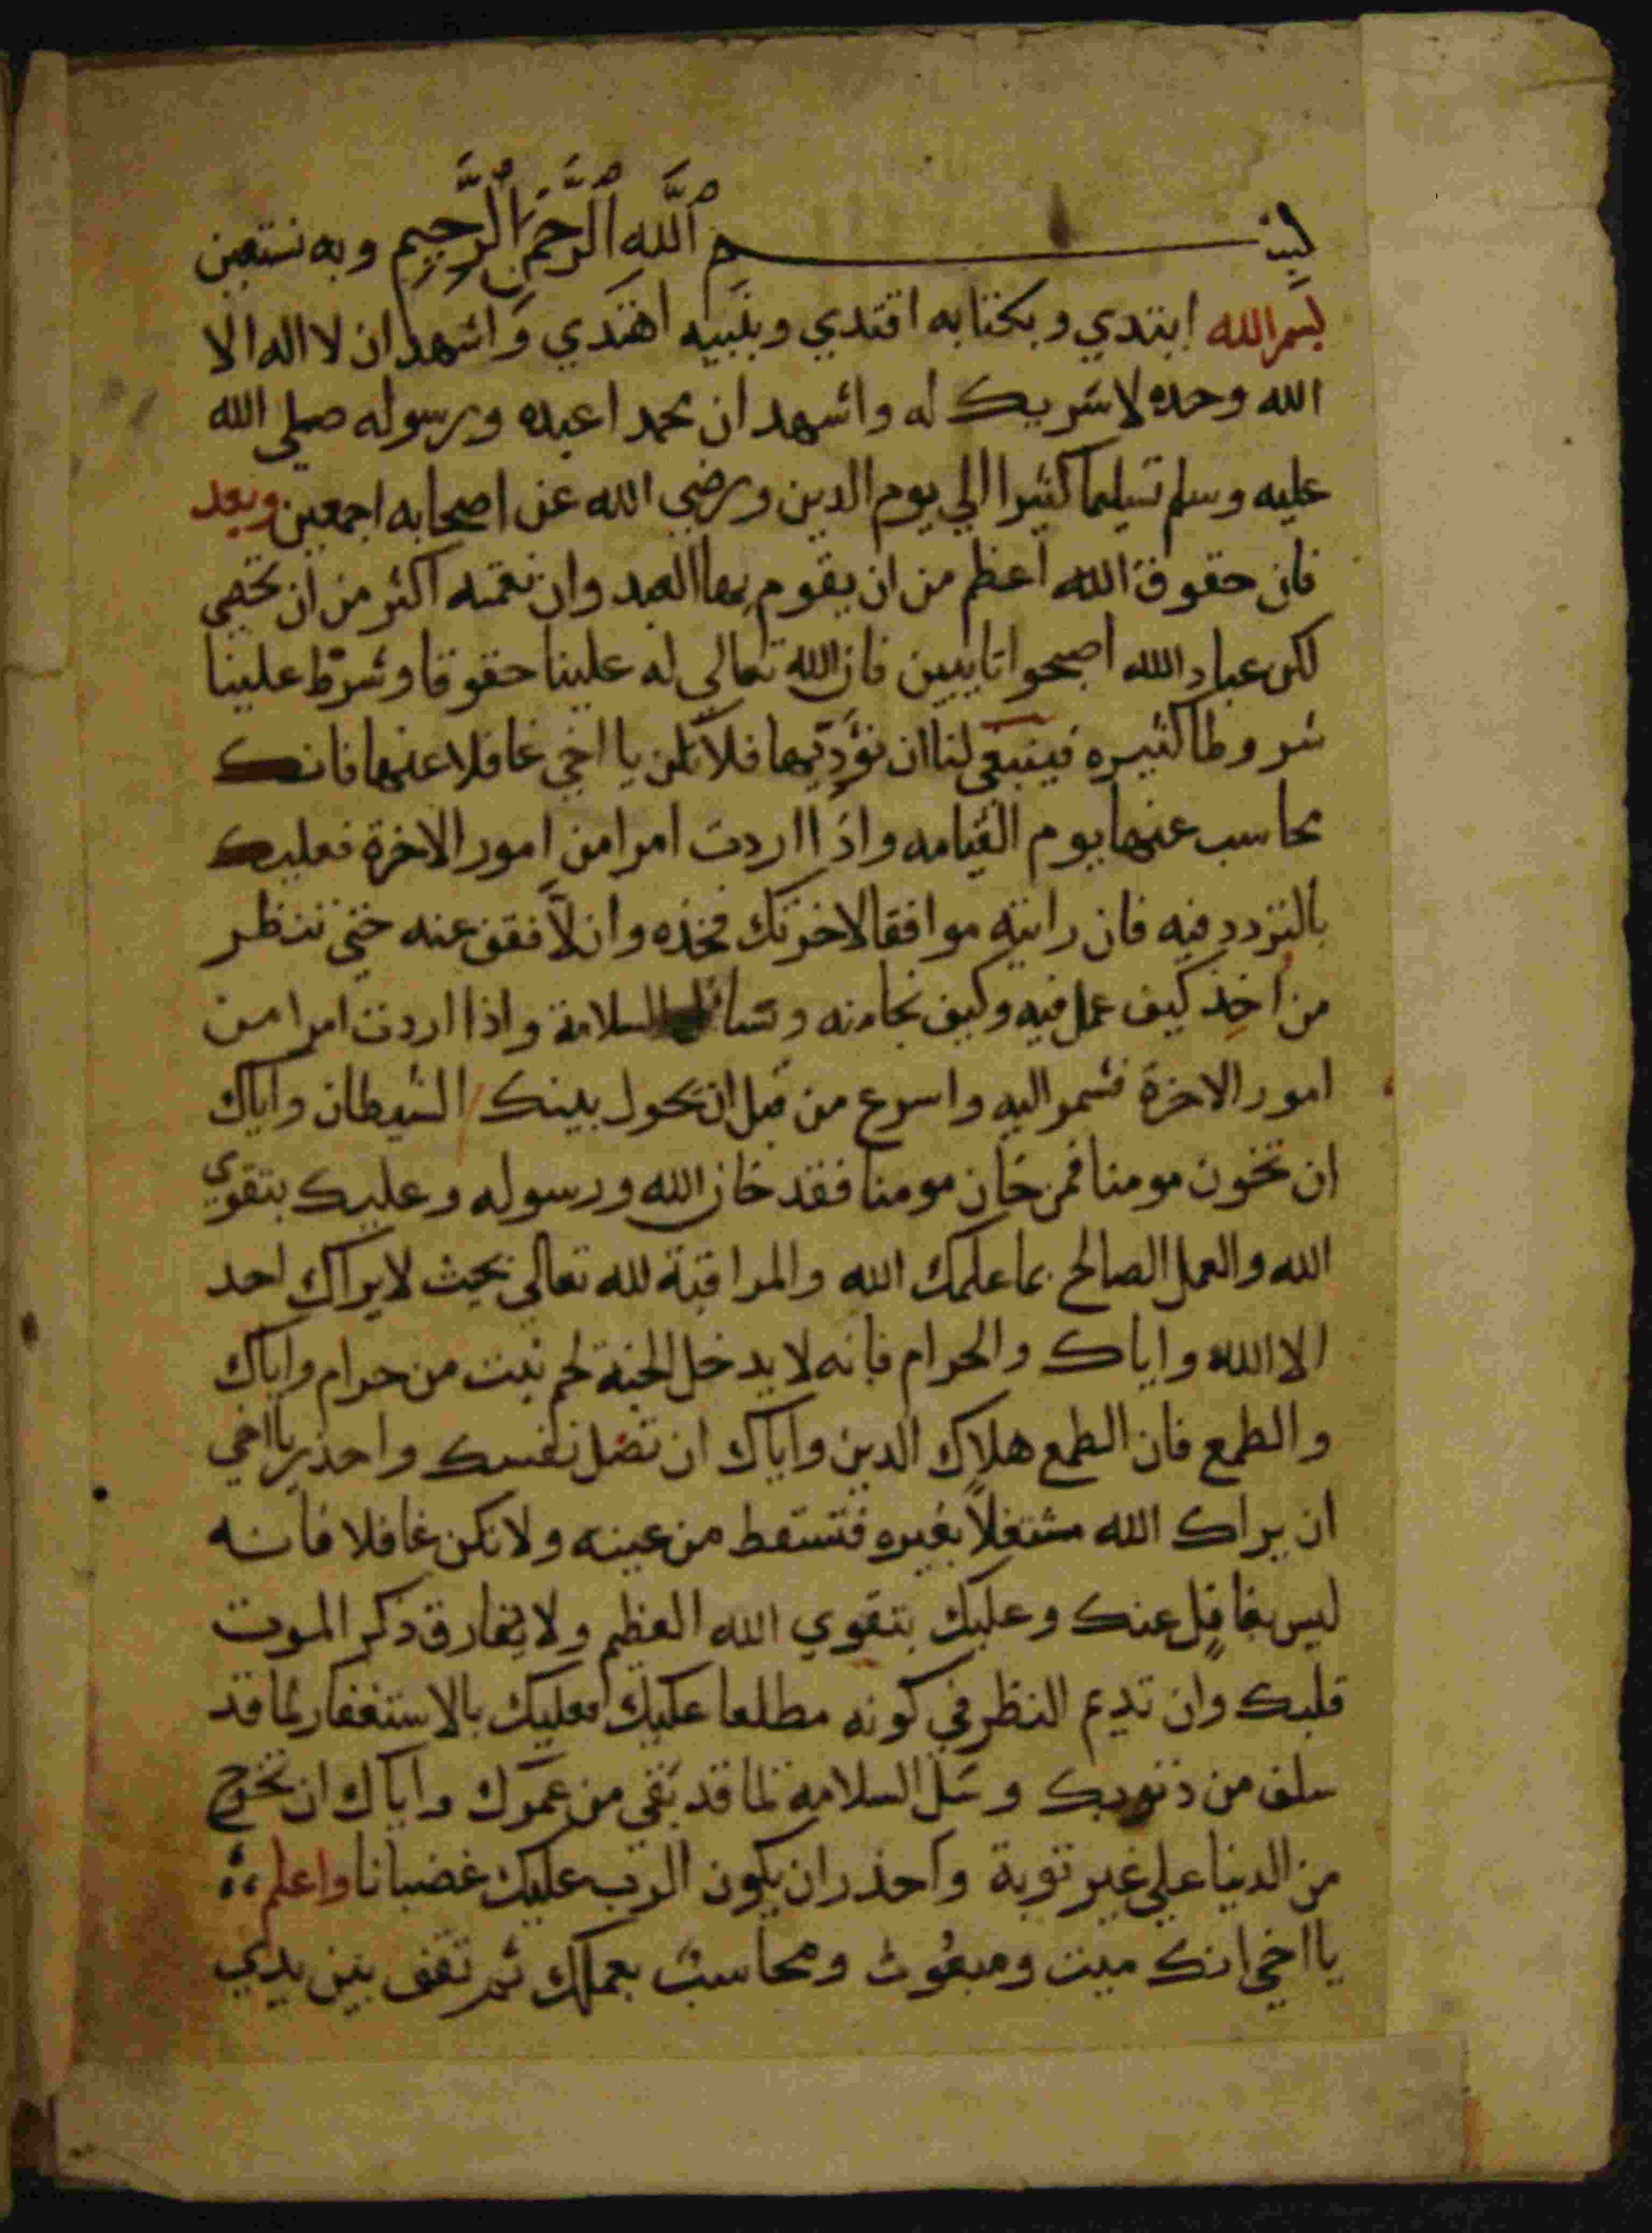 بسم الله الرحمن الرحيم وبه نستعين
بسم الله ابتدي وبكتابه اقتدي وبنبيه اهتدي واشهد ان لا اله الا
الله وحده لا شريك له واشهد ان محمدا عبده ورسوله صلي الله
عليه وسلم تسليما كثيرا الي يوم الدين ورضي الله عن اصحابه اجمعين وبعد
فان حقوق الله اعظم من ان يقوم بها العبد وان نعمته اكثر من ان تحصي
لكن عباد الله اصبحوا تايبين فان الله تعالي له علينا حقوقا وشرط علينا
شروطا كثيره فينبغي لنا ان نؤديها فلا تكن يا اخي غافلا عنها فانك
محاسب عنها يوم القيامه واذا اردت امرا من امور الاخرة فعليك
بالتردد فيه فان رايته موافقا لاخرتك فخذه وان لا فقف عنه حتي تنظر
من اخذ كيف عمل فيه وكيف نجا منه السلامة واذا اردت امرا من
امور الاخرة فشمر اليه واسرع من قبل ان يحول بينك الشيطان واياك
ان تخون مومنا فمن خان مومنا فقد خان الله ورسوله وعليك بتقوي
الله والعمل الصالح بما علمك الله والمراقبة لله تعالي بحيث لا يراك احد
الا الله واياك والحرام فانه لا يدخل الجنة لحم نبت من حرام واياك
والطمع فان الطمع هلاك الدين واياك ان تضل نفسك واحذر يا اخي
ان يراك الله مشتغلا بغيره فتسقط من عينه ولا تكن غافلا فانه
ليس بغافل عنك وعليك بتقوي الله العظيم ولا يفارق ذكر الموت
قلبك وان تديم النظر في كونه مطلعا عليك فعليك بالاستغفار لما قد
سلف من ذنوبك وسل السلامة لما قد بقي من عمرك واياك ان تخرج
من الدنيا علي غير توبة واحذر ان يكون الرب عليك غضبانا واعلم
يا اخي انك ميت ومبعوث ومحاسب بعملك ثم تقف بين يدي